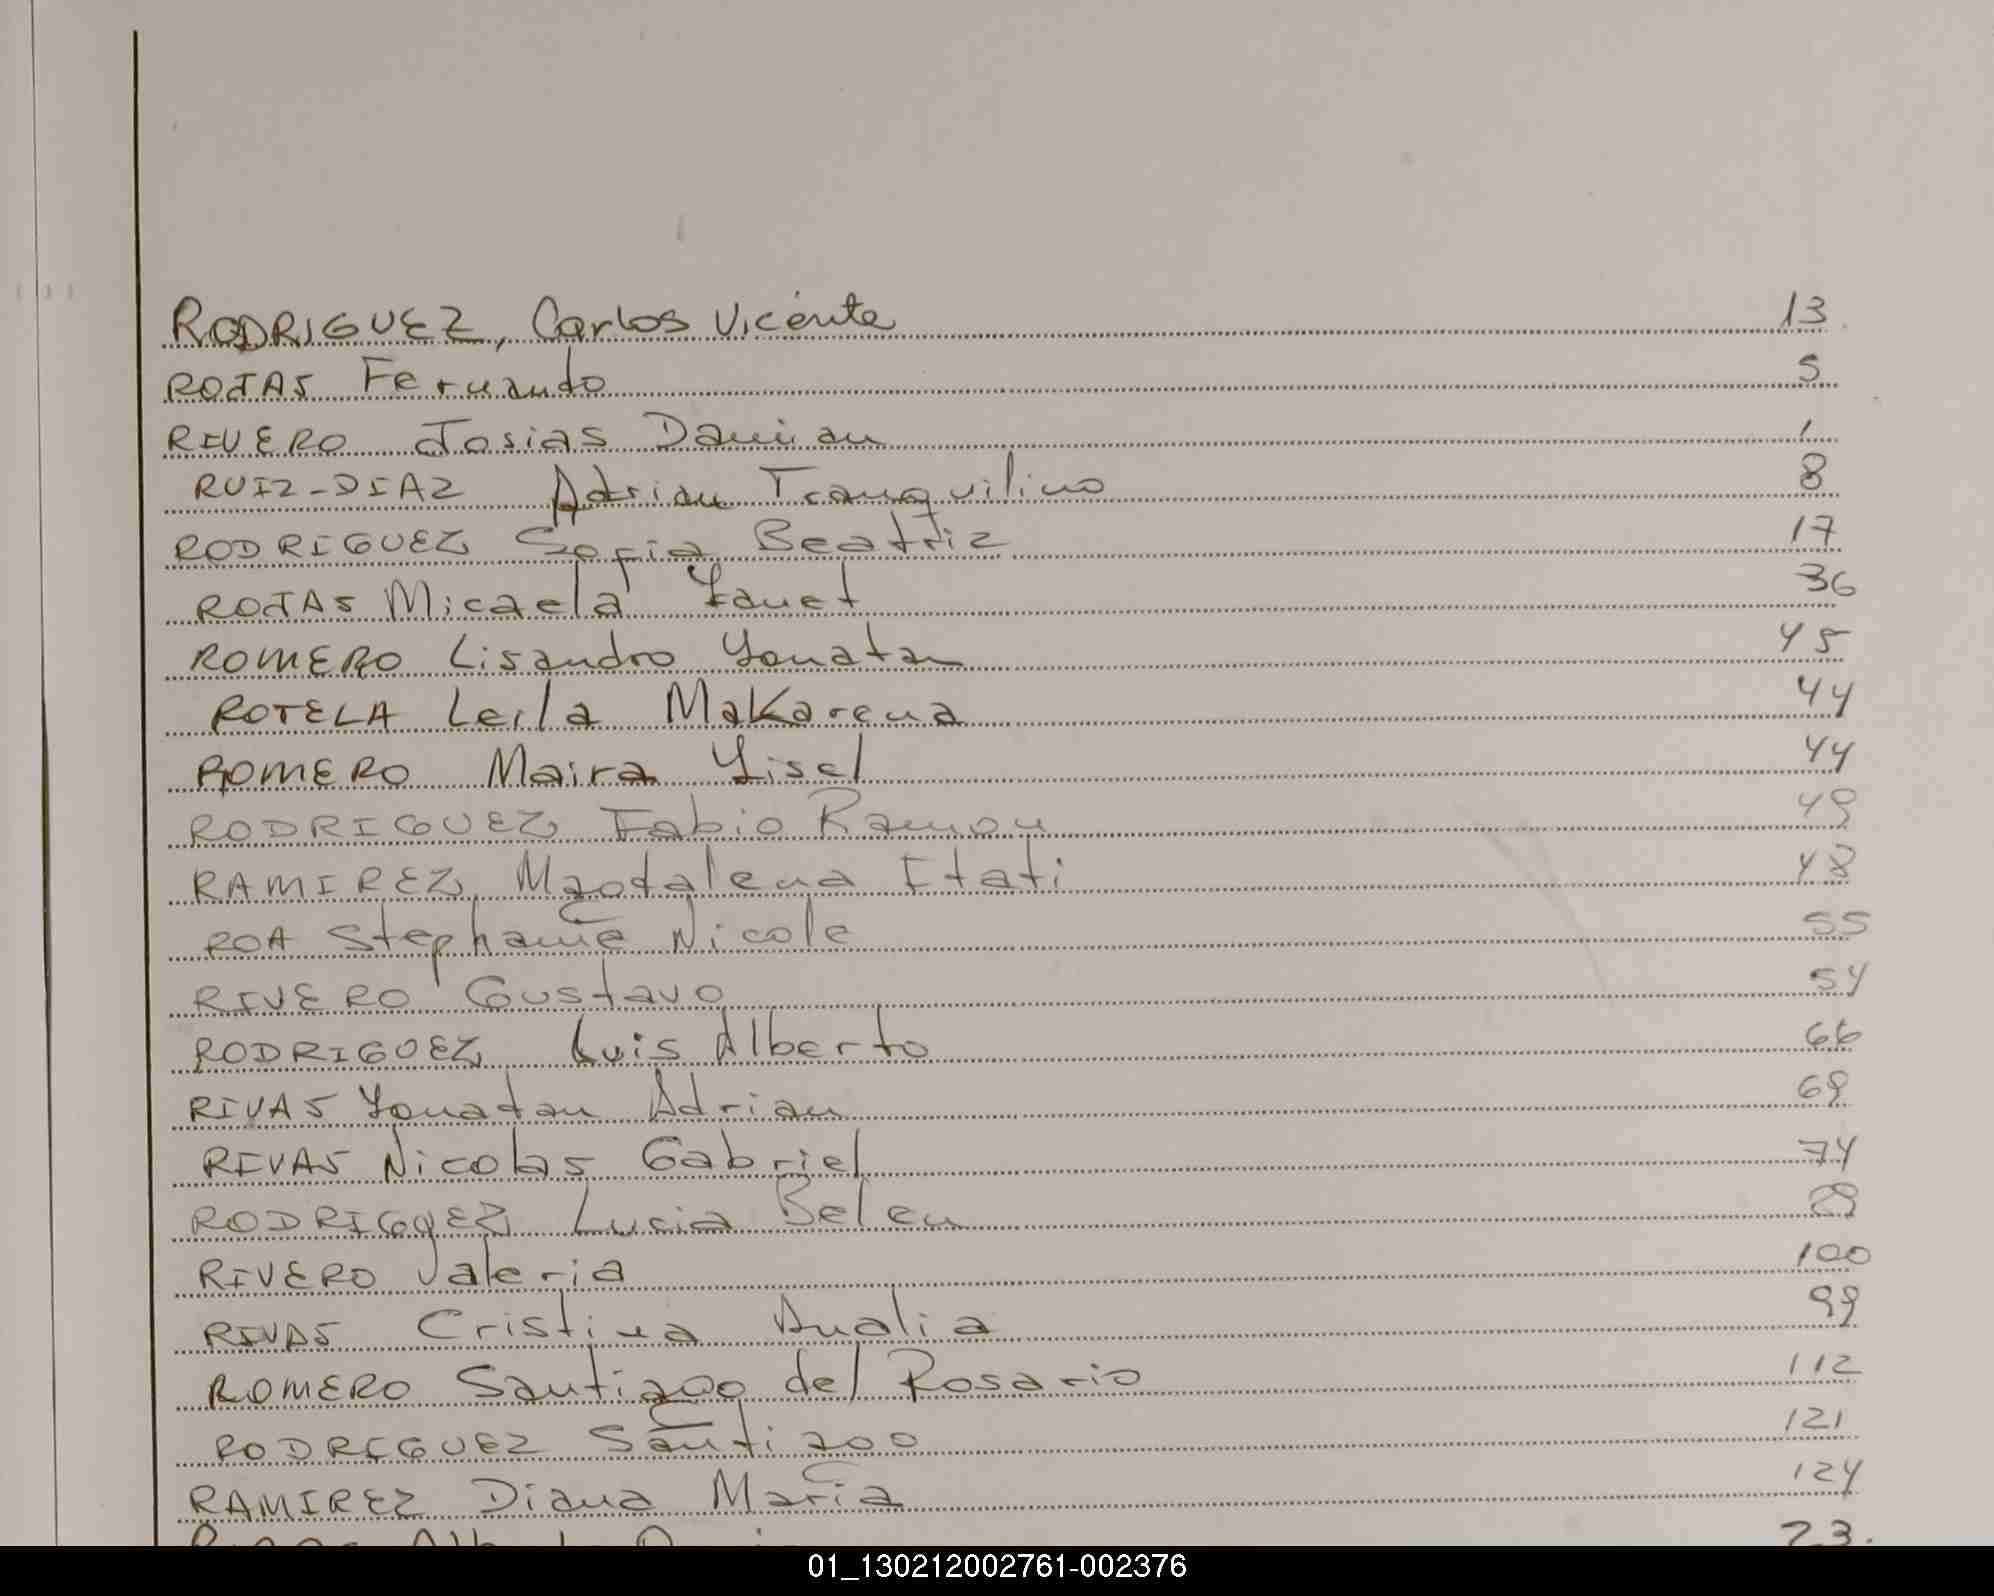 RODRIGUEZ, Carlos Vicente 13
ROJAS Fernando 5
RIVERO Josias Damian 1
RUIZ-DIAZ Adrian Tranquilino 8
RODRIGUEZ Sofia Beatriz 17
ROJAS Micaela Yanet 36
ROMERO Lisandro Yonatan 45
ROTELA Leila Makarena 44
ROMERO Maira Yisel 44
RODRIGUEZ Fabio Ramon 49
RAMIREZ Magdalena Itati 48
ROA Stephanie Nicole 55
RIVERO Gustavo 54
RODRIGUEZ Luis Alberto 66
RIVAS Yonatan Adrian 69
RIVAS Nicolas Gabriel 74
RODRIGUEZ Lucia Belen
RIVERO Valeria 100
RIVAS Cristina Analia 99
ROMERO Santiago del Rosario 112
RODRIGUEZ Santiago 121
RAMIREZ Diana Maria 124
23.
01_130212002761-002376